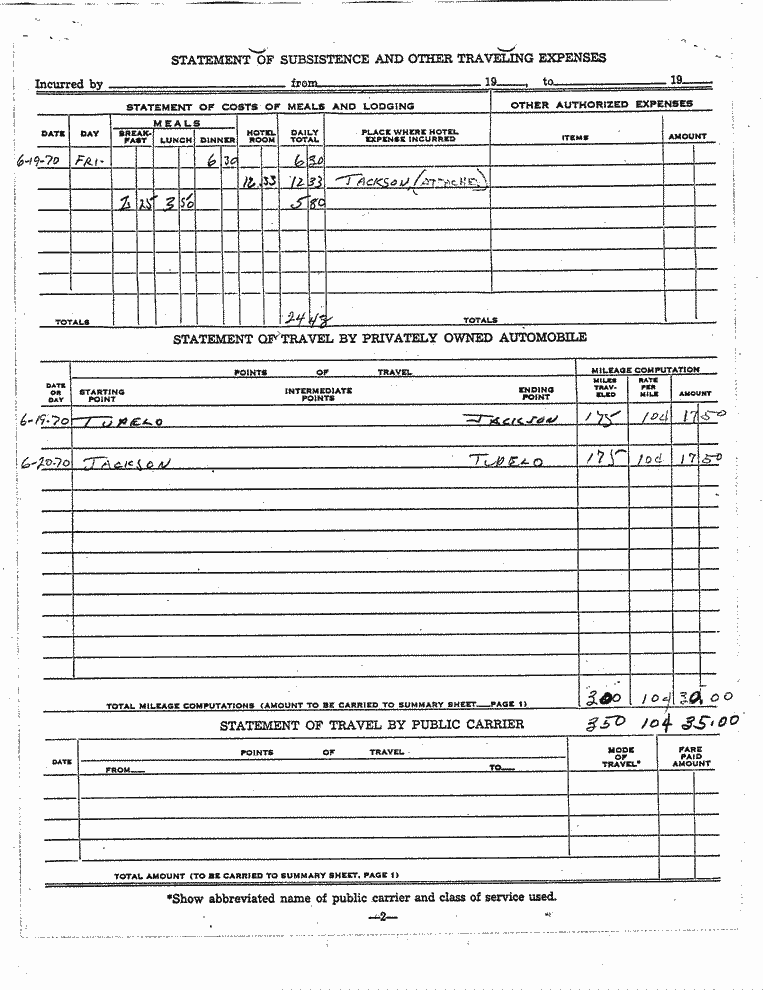 STATEMENT OF SUBSISTENCE AND OTHER TRAVELING EXPENSES
Incurred by from 19 , to 19
STATEMENT OF COSTS OF MEALS AND LODGING OTHER AUTHORIZED EXPENSES
DATE DAY MEALS BREAK-FAST LUNCH DINNER HOTEL ROOM DAILY TOTAL PLACE WHERE HOTEL EXPENSE INCURRED ITEMS AMOUNT
6-19-70 FRI- 6 30 6 30
12 33 12 33 JACKSON (ATTACHED)
2 25 3 50 5 80
TOTALS 24 43 TOTALS
STATEMENT OF TRAVEL BY PRIVATELY OWNED AUTOMOBILE
POINTS OF TRAVEL MILEAGE COMPUTATION
DATE OR DAY STARTING POINT INTERMEDIATE POINTS ENDING POINT MILES TRAV-ELED RATE PER MILE AMOUNT
6-19-70 TUPELO JACKSON 175 10¢ 17 50
6-20-70 JACKSON TUPELO 175 10¢ 17 50
TOTAL MILEAGE COMPUTATIONS (AMOUNT TO BE CARRIED TO SUMMARY SHEET—PAGE 1) 300 10¢ 30.00
STATEMENT OF TRAVEL BY PUBLIC CARRIER 350 10¢ 35.00
DATE POINTS OF TRAVEL MODE OF TRAVEL* FARE PAID AMOUNT
FROM— TO—
TOTAL AMOUNT (TO BE CARRIED TO SUMMARY SHEET, PAGE 1)
*Show abbreviated name of public carrier and class of service used.
—2—